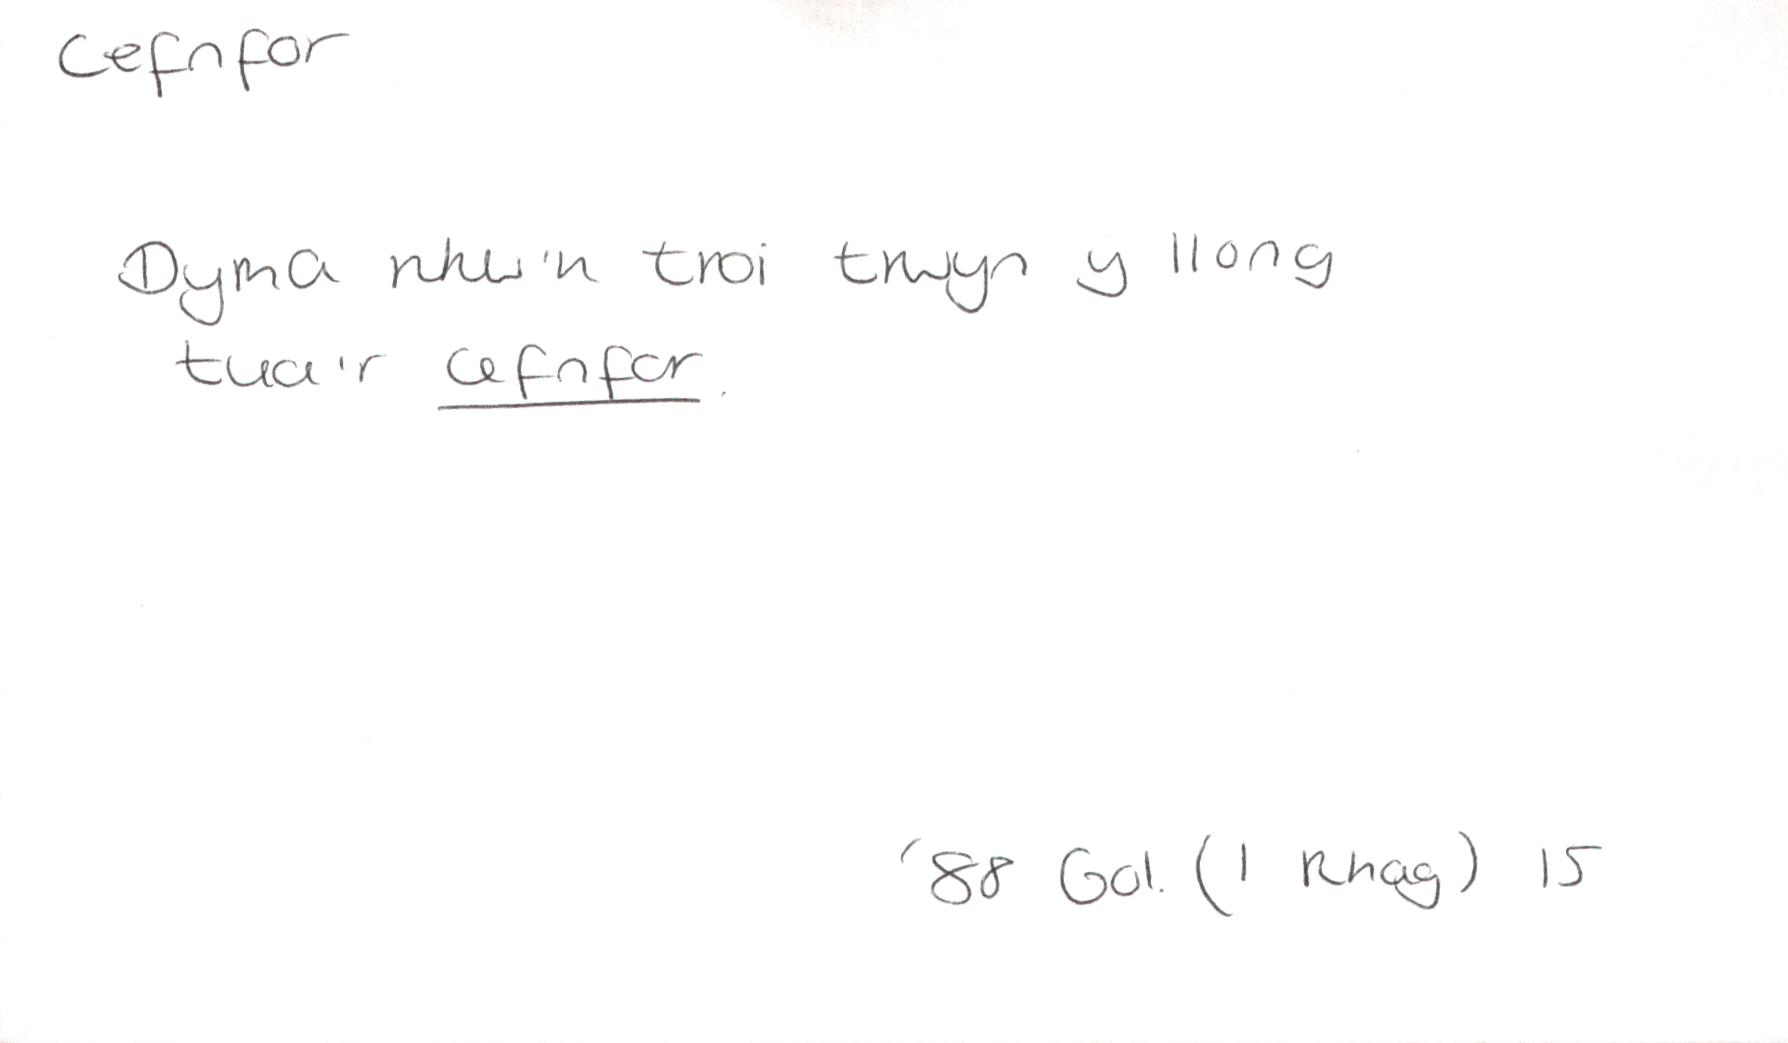 Cefnfor
Dyma nhw'n troi trwyn y llong
tua'r cefnfor.
'88 Gol. (1 Rhag) 15